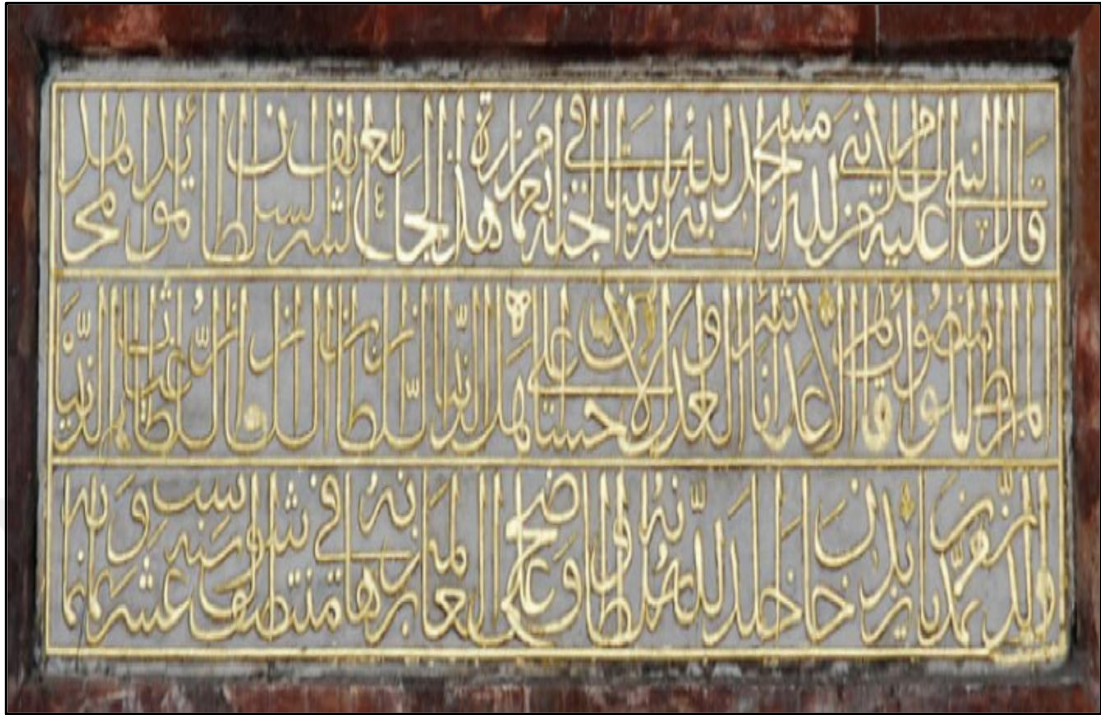 قال النبي عليه السلام من بنى لله مسجدا بنى الله له بيتا في الجنة امر بعمارة هذا الجامع الشريف السلطان المؤيد المجاهد
المرابط المظفر المنصور قاهر الاعداء ناشر العدل والاحسان على السلطان ابن السلطان غياث الدنيا
والدين محمد بن بايزيد خان خلد الله سلطانه واوضح على العالمين برهانه في منتصف شوال لسنة عشر وثمانمائة